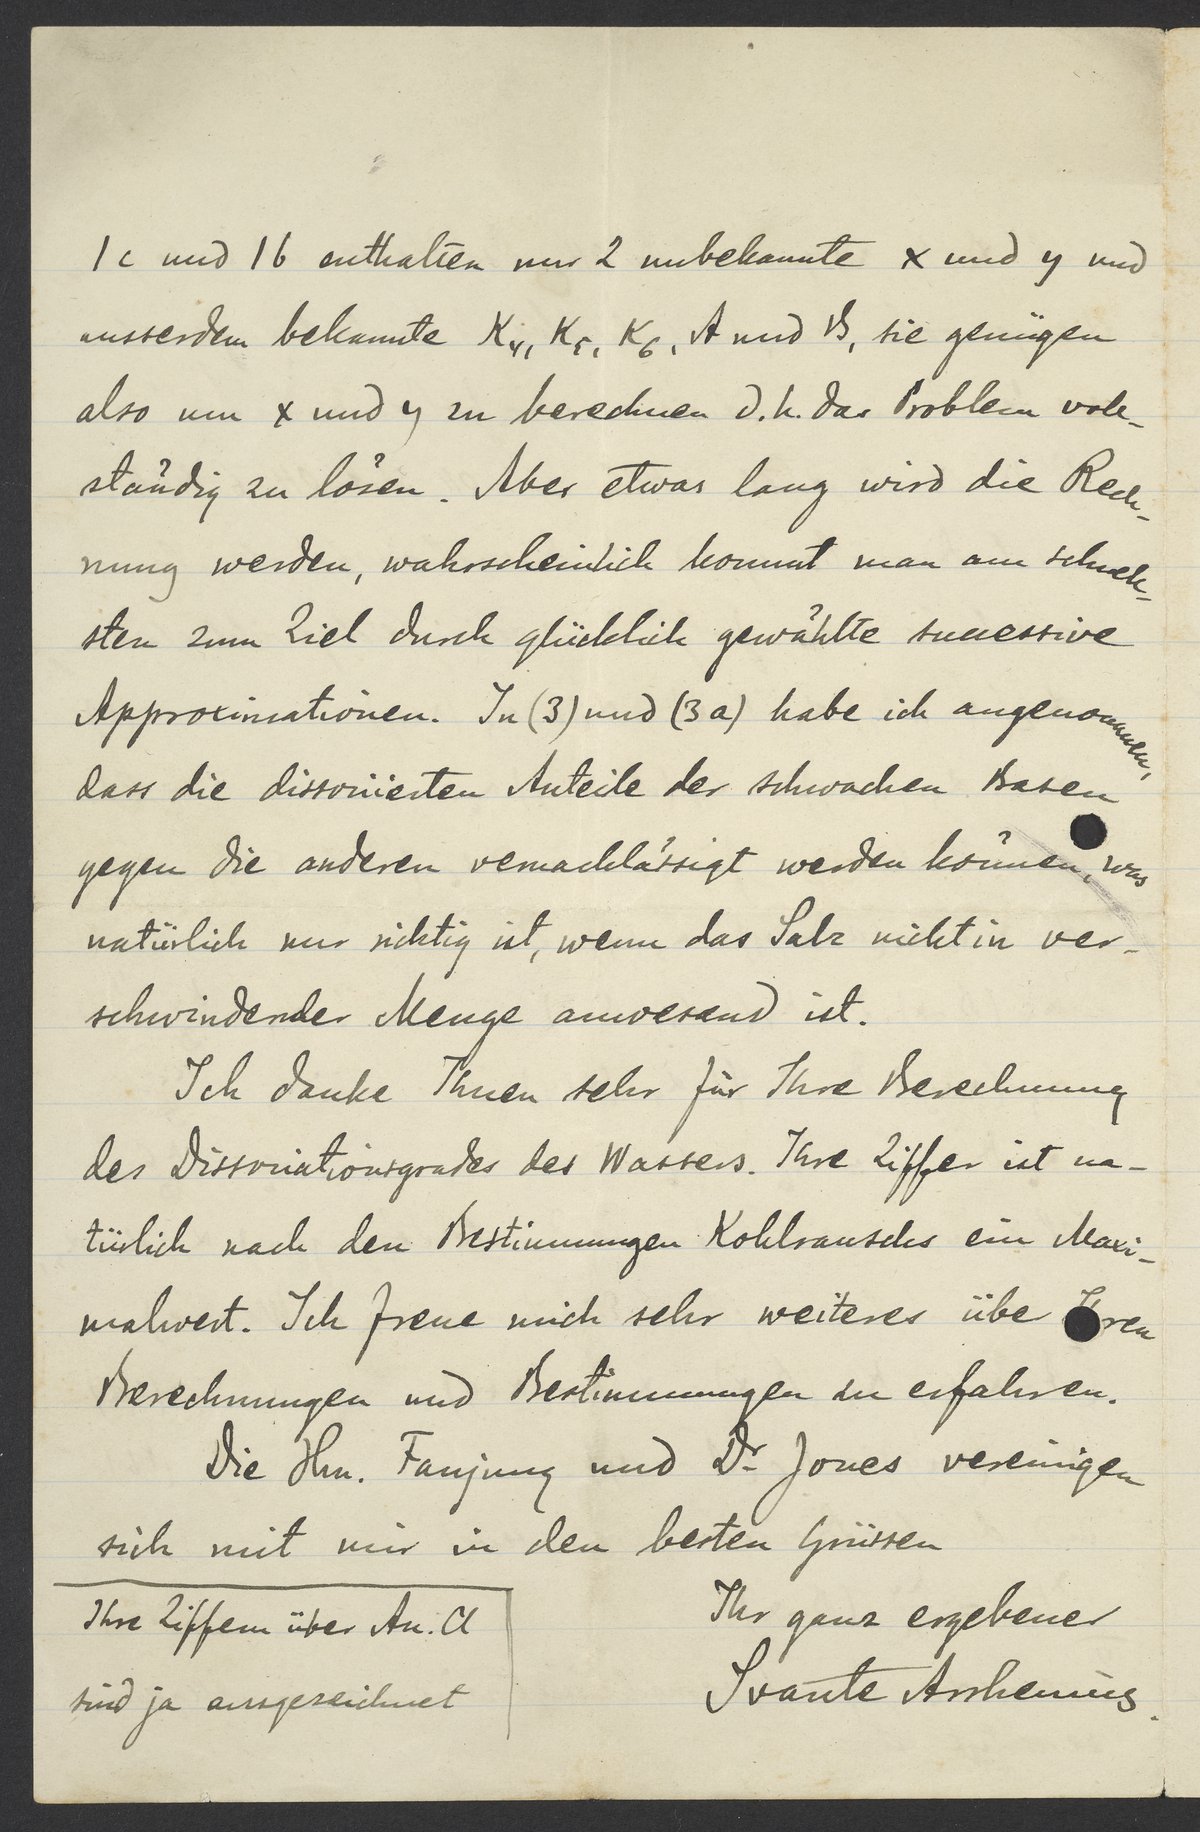 1c und 1b enthalten nur 2 unbekannte x und y und
ausserdem bekannte K4, K5, K6, A und B, sie genügen
also um x und y zu berechnen d.h. das Problem voll-
ständig zu lösen. Aber etwas lang wird die Rech-
nung werden, wahrscheinlich kommt man am schnell-
sten zum Ziel durch glücklich gewählte successive
Approximationen. In (3) und (3a) habe ich angenommen,
dass die dissociierten Anteile der schwachen Basen
gegen die anderen vernachlässigt werden können, was
natürlich nur richtig ist, wenn das Salz nicht in ver-
schwindender Menge anwesend ist.
Ich danke Ihnen sehr für Ihre Berechnung
des Dissociationsgrades des Wassers. Ihre Ziffer ist na-
türlich nach den Bestimmungen Kohlrauschs ein Maxi-
malwert. Ich freue mich sehr weiteres über Ihren
Berechnungen und Bestimmungen zu erfahren.
Die Hrn. Fanjung und Dr. Jones vereinigen
sich mit mir in den besten Grüssen
Ihr ganz ergebener
Svante Arrhenius.
Ihre Ziffern über An. Cl
sind ja ausgezeichnet